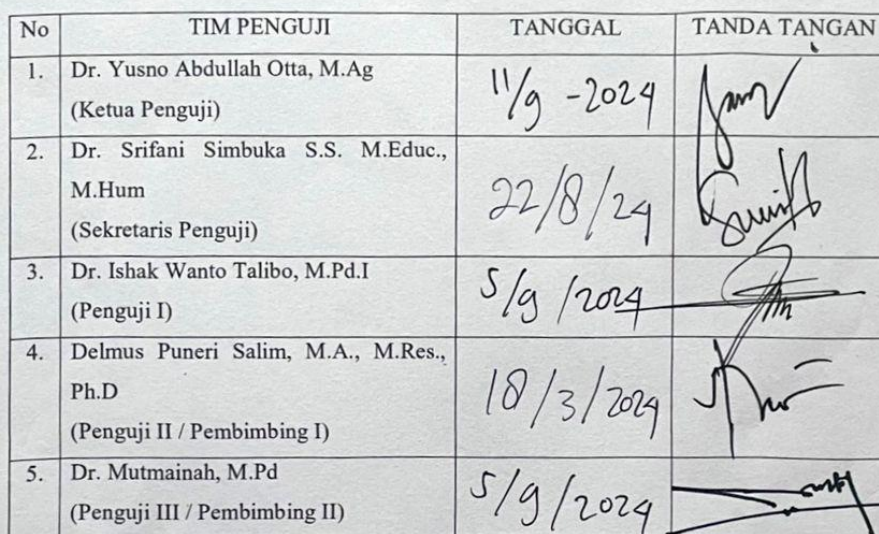 No TIM PENGUJI TANGGAL TANDA TANGAN
1. Dr. Yusno Abdullah Otta, M.Ag
(Ketua Penguji)
11/9 - 2024
2. Dr. Srifani Simbuka S.S. M.Educ.,
M.Hum
(Sekretaris Penguji)
22/8/24
3. Dr. Ishak Wanto Talibo, M.Pd.I
(Penguji I)
5/9/2024
4. Delmus Puneri Salim, M.A., M.Res.,
Ph.D
(Penguji II / Pembimbing I)
18/3/2024
5. Dr. Mutmainah, M.Pd
(Penguji III / Pembimbing II)
5/9/2024